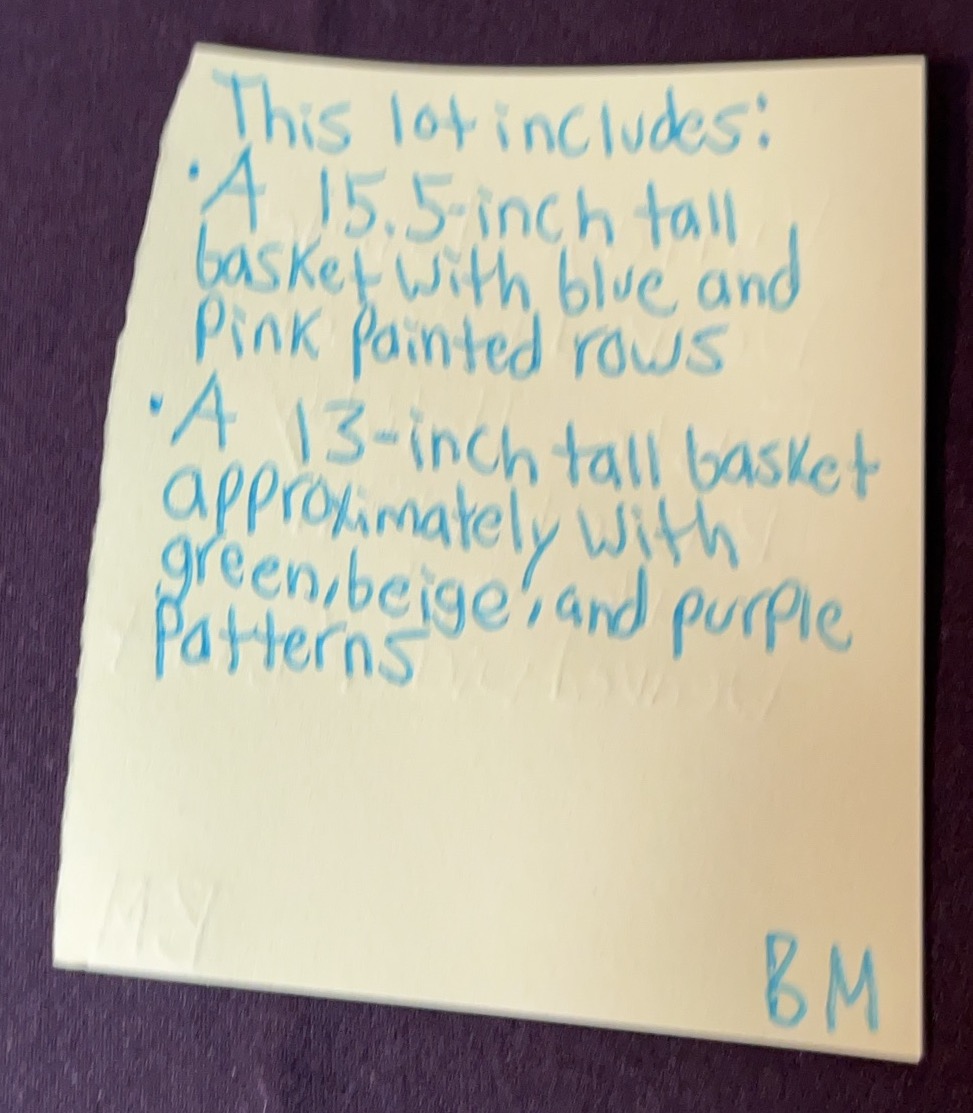 This lot includes:
• A 15.5-inch tall
basket with blue and
Pink Painted rows
• A 13-inch tall basket
approximately with
green, beige, and purple
Patterns
BM